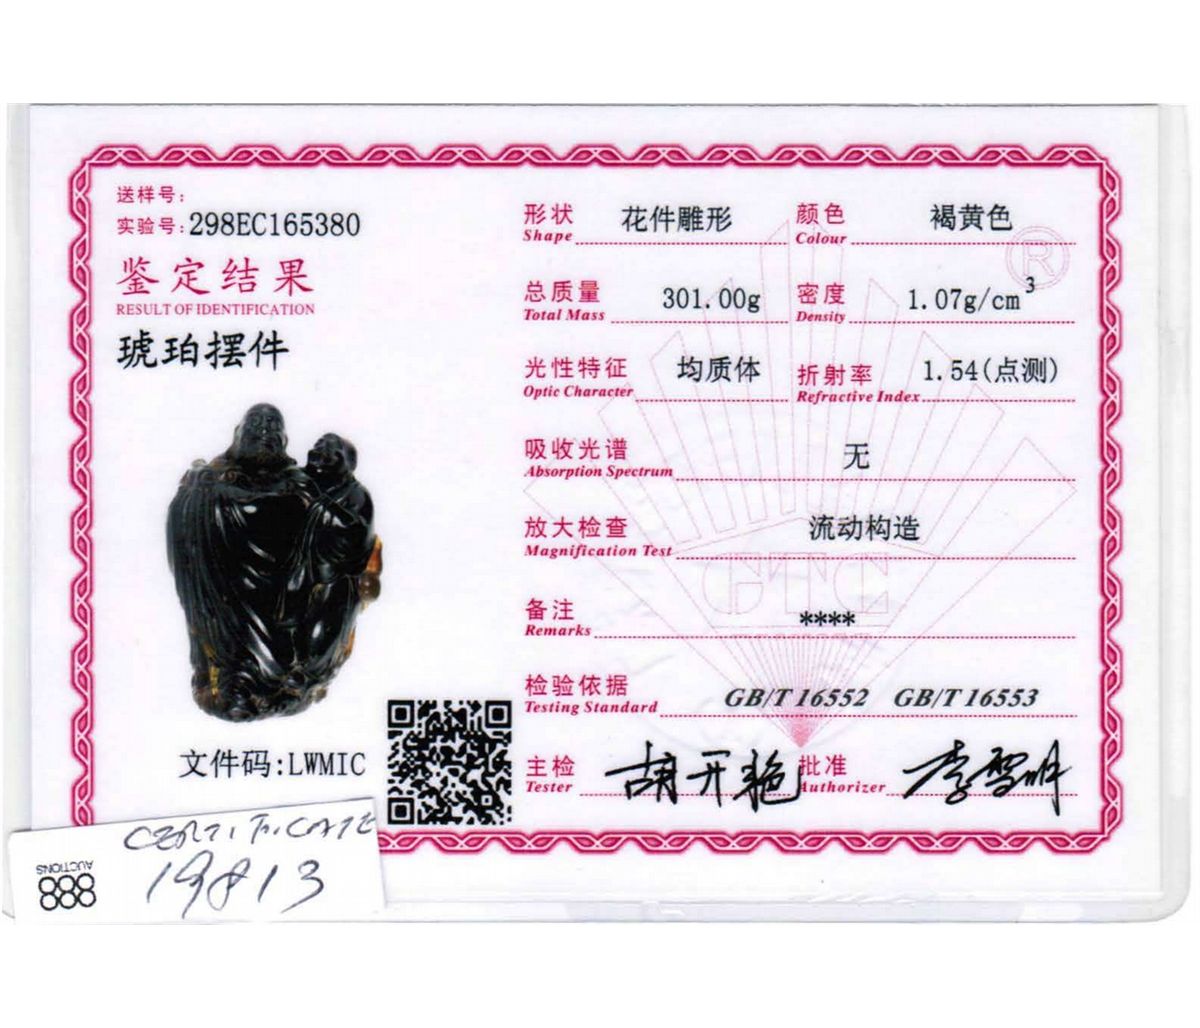 送样号:
实验号:298EC165380
鉴定结果
RESULT OF IDENTIFICATION
琥珀摆件
文件码:LWMIC
形状 花件雕形 颜色 褐黄色
Shape Colour
®
总质量 301.00g 密度 1.07g/cm3
Total Mass Density
光性特征 均质体 折射率 1.54(点测)
Optic Character Refractive Index
吸收光谱 无
Absorption Spectrum
放大检查 流动构造
Magnification Test
GTC
备注 ****
Remarks
检验依据 GB/T 16552 GB/T 16553
Testing Standard
主检 胡开艳 批准 李雪明
Tester Authorizer
CERTIFICATE
19813
888
AUCTIONS